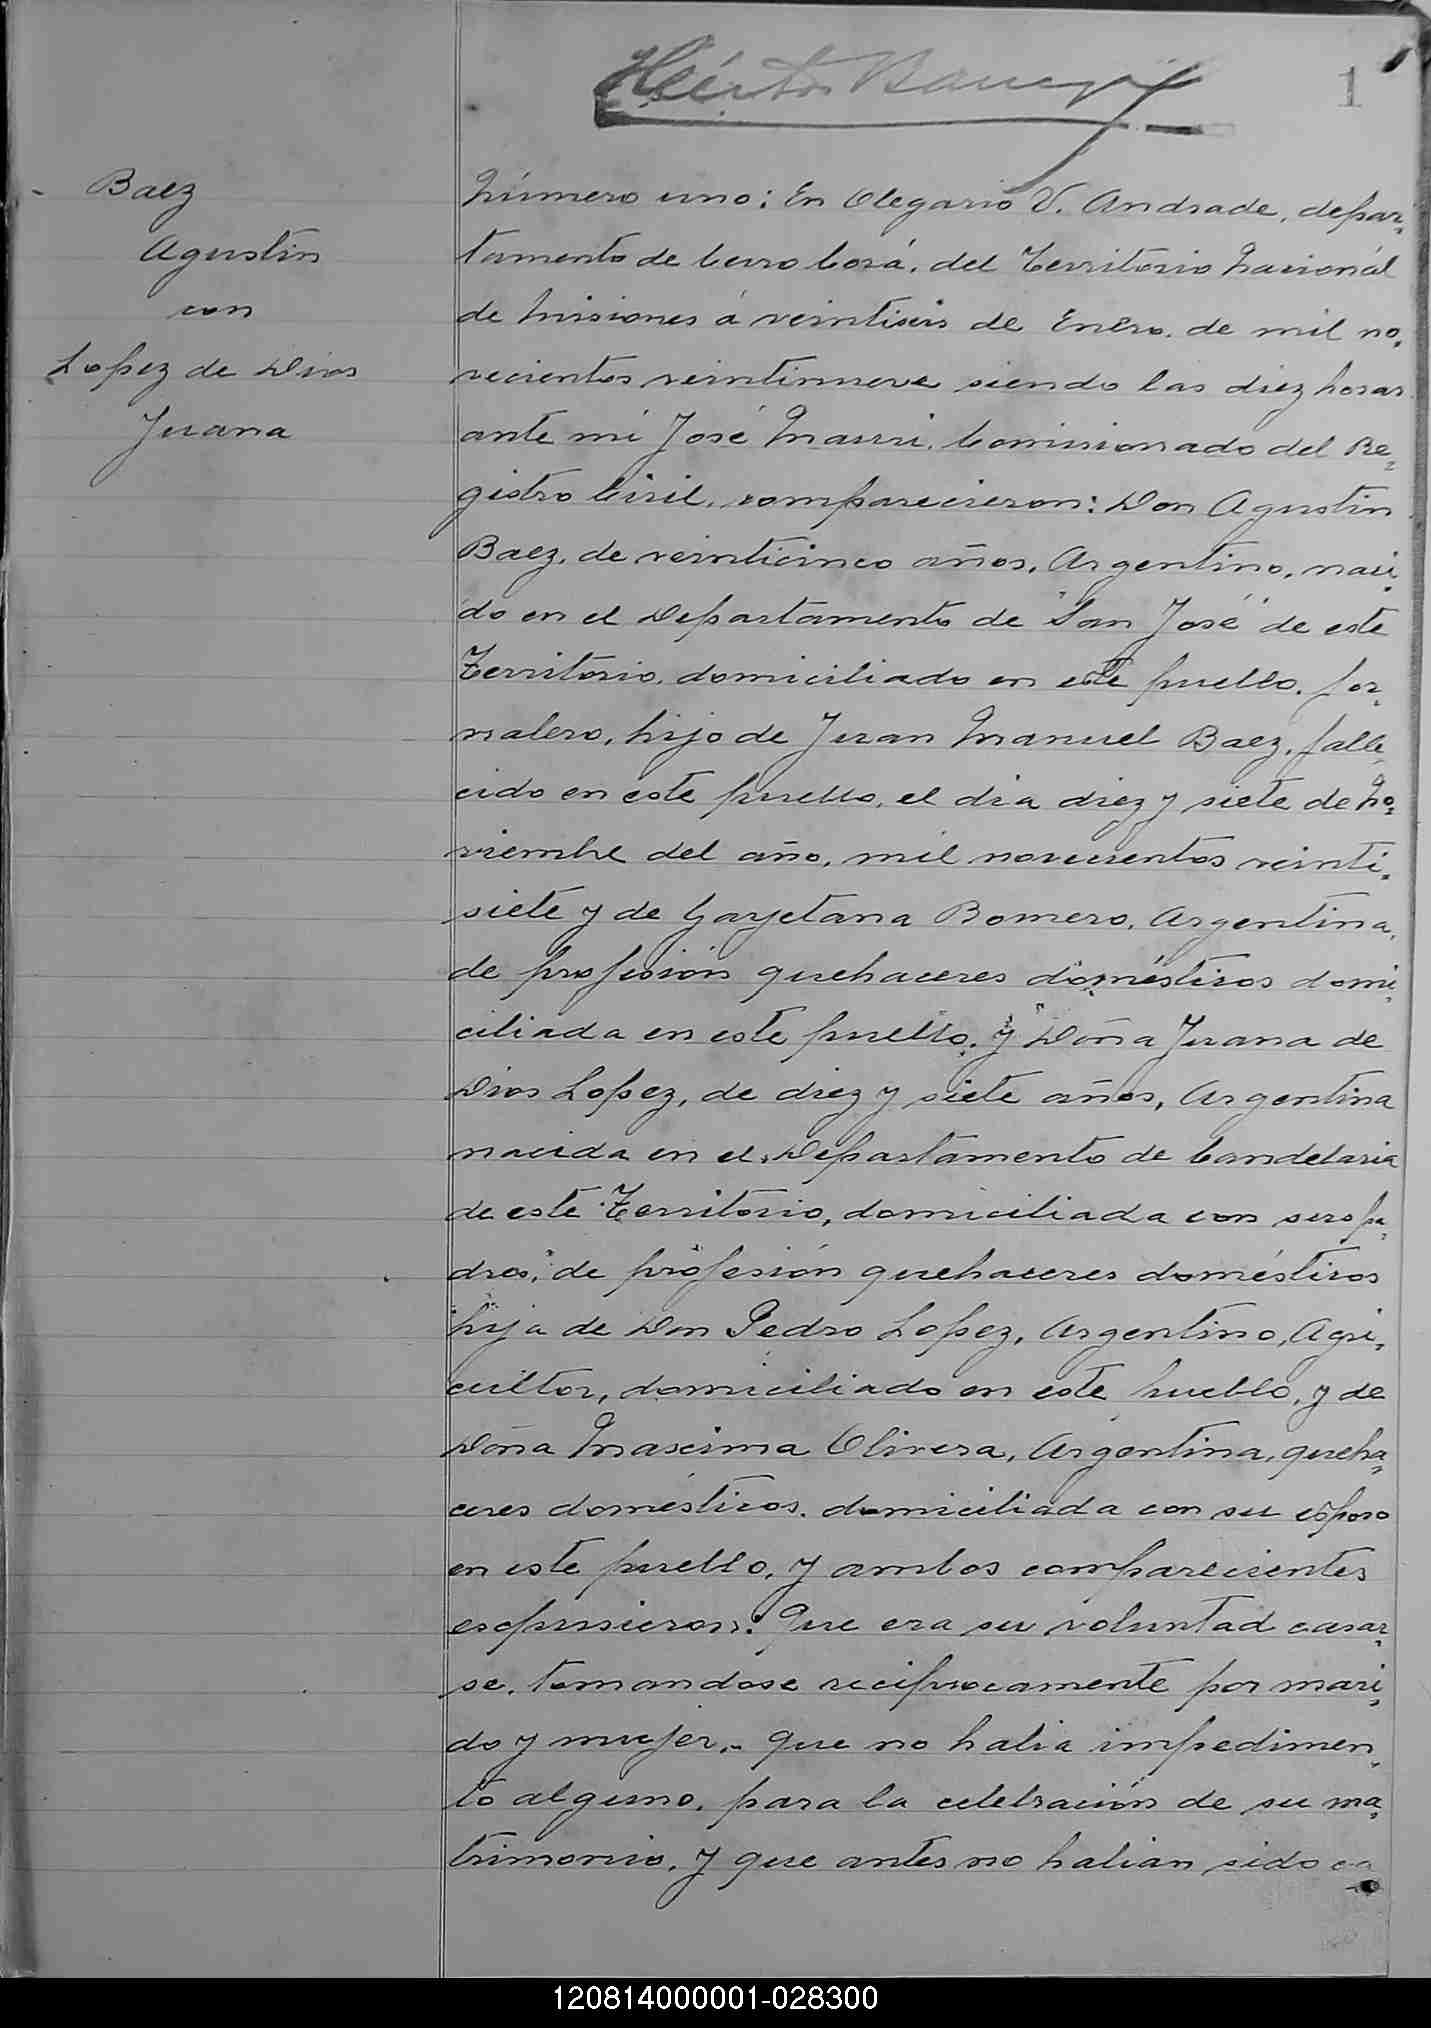 1
Baez
Agustin
con
Lopez de Dios
Juana
Número uno: En Olegario V. Andrade, depar-
tamento de Cerro Corá, del Territorio Nacionál
de Misiones á veintiseis de Enero, de mil no-
vecientos veintinueve siendo las diez horas
ante mi José Mauri, Comisionado del Re-
gistro Civil, comparecieron: Don Agustin
Baez, de veinticinco años, Argentino, naci-
do en el Departamento de "San José" de este
Territorio, domiciliado en este pueblo, jor-
nalero, hijo de Juan Manuel Baez, falle-
cido en este pueblo, el dia diez y siete de No-
viembre del año, mil novecientos veinti-
siete y de Gayetana Romero, Argentina,
de profesión quehaceres doméstivos domi-
ciliada en este pueblo, y Doña Juana de
Dios Lopez, de diez y siete años, Argentina
nacida en el Departamento de Candelaria
de este Territorio, domiciliada con sus pa-
dres, de profesión quehaceres doméstivos
hija de Don Pedro Lopez, Argentino, Agri-
cultor, domiciliado en este pueblo, y de
Doña Maxima Olivera, Argentina, queha-
ceres doméstivos, domiciliada con su esposo
en este pueblo, y ambos comparecientes
expusieron: Que era su voluntad casar-
se, tomandose reciprocamente por mari-
do y mujer,- que no habia impedimen-
to alguno, para la celebración de su ma-
trimonio, y que antes no habian sido ca
120814000001-028300